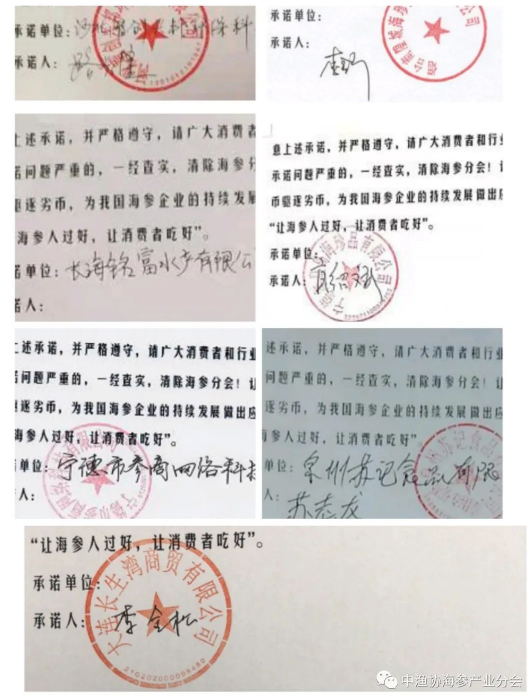 承诺单位:
承诺人:
承诺人:
上述承诺，并严格遵守，请广大消费者
承诺问题严重的，一经查实，清除海参分
币驱逐劣币，为我国海参企业的持续发展
海参人过好，让消费者吃好”。
诺单位: 长海铭富水产有限公
诺人:
意上述承诺，并严格遵守，请广大消费者和行业
承诺问题严重的，一经查实，清除海参分会！让
币驱逐劣币，为我国海参企业的持续发展做出应
“让海参人过好，让消费者吃好”。
承诺单位:
承诺人:
上述承诺，并严格遵守，请广大消费者和行业
诺问题严重的，一经查实，清除海参分会！让
驱逐劣币，为我国海参企业的持续发展做出应
海参人过好，让消费者吃好”。
单位: 宁德市参商网络科技
人:
述承诺，并严格遵守，请广大消费者和行业
问题严重的，一经查实，清除海参分会！让
逐劣币，为我国海参企业的持续发展做出应
海参人过好，让消费者吃好”。
单位: 泉州苏记食品有限
人: 苏志龙
“让海参人过好，让消费者吃好”。
承诺单位:
承诺人: 李全松
大连长生湾商贸有限公司
中渔协海参产业分会